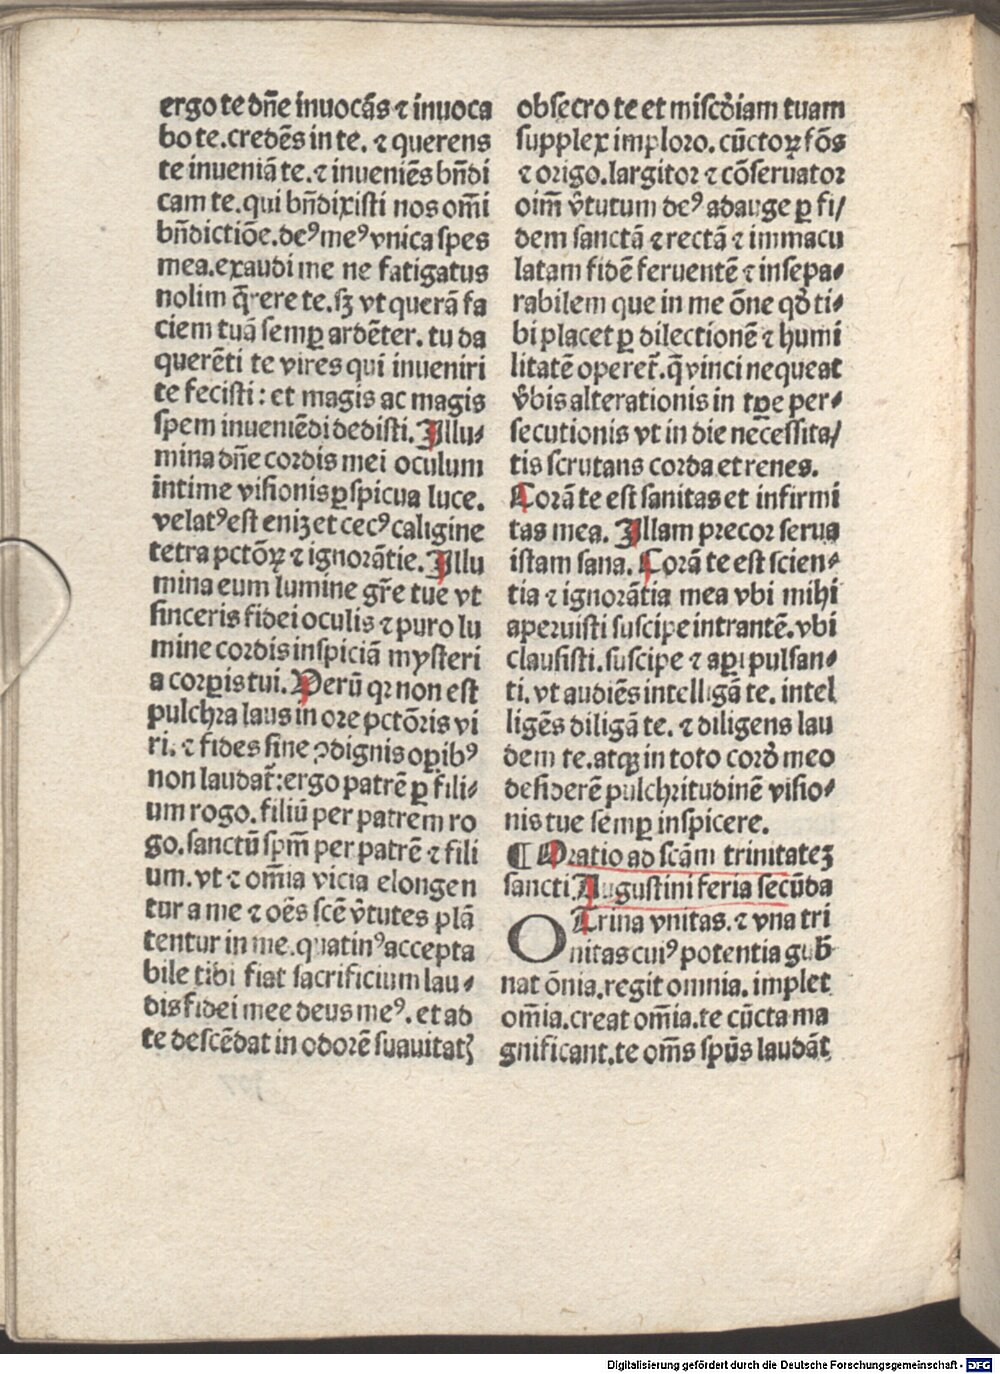 ergo te dn̄e inuocās ⁊ inuoca
bo te. credēs in te. ⁊ querens
te inueniā te. ⁊ inueniēs bn̄di
cam te. qui bn̄dixisti nos om̄i
bn̄dictiōe. deꝰ meꝰ vnica spes
mea. exaudi me ne fatigatus
nolim q̄rere te. sꝫ vt querā fa
ciem tuā semꝑ ardēter. tu da
querēti te vires qui inueniri
te fecisti: et magis ac magis
spem inueniēdi dedisti. Illu-
mina dn̄e cordis mei oculum
intime visionis ꝑspicua luce.
velatꝰ est eniꝫ et cecꝰ caligine
tetra pctōꝝ ⁊ ignorātie. Illu
mina eum lumine gr̄e tue vt
sinceris fidei oculis ⁊ puro lu
mine cordis inspiciā mysteri
a corꝑis tui. Verū qꝛ non est
pulchra laus in ore pctōris vi
ri. ⁊ fides sine ꝯdignis oꝑibꝰ
non laudat̄: ergo patrē ꝑ fili-
um rogo. filiū per patrem ro
go. sanctū spm̄ per patrē ⁊ fili
um. vt ⁊ om̄ia vicia elongen
tur a me ⁊ oēs scē v̄tutes plā
tentur in me. quatinꝰ accepta
bile tibi fiat sacrificium lau-
dis fidei mee deus meꝰ. et ad
te descēdat in odorē suauitatꝭ
obsecro te et miscd̄iam tuam
supplex imploro. cūctoꝝ fōs
⁊ origo. largitor ⁊ cōseruator
oim̄ v̄tutum deꝰ adauge ꝑ fi/
dem sanctā ⁊ rectā ⁊ immacu
latam fidē feruentē ⁊ insepa-
rabilem que in me ōne qd̄ ti-
bi placet ꝑ dilectionē ⁊ humi
litatē operet̄. q̄ vinci nequeat
v̄bis alterationis in tꝑe per-
secutionis vt in die necessita/
tis scrutans corda et renes.
Corā te est sanitas et infirmi
tas mea. Illam precor serua
istam sana. Corā te est scien-
tia ⁊ ignorātia mea vbi mihi
aperuisti suscipe intrantē. vbi
clausisti. suscipe ⁊ aꝑi pulsan-
ti. vt audiēs intelligā te. intel
ligēs diligā te. ⁊ diligens lau
dem te. atqꝫ in toto cord̄ meo
desiderē pulchritudinē visio-
nis tue semꝑ inspicere.
¶ Oratio ad scām trinitateꝫ
sancti Augustini feria secūda
O Trina vnitas. ⁊ vna tri
nitas cuiꝰ potentia gub̄
nat ōnia. regit omnia. implet
om̄ia. creat om̄ia. te cūcta ma
gnificant. te om̄s spūs laudāt
Digitalisierung gefördert durch die Deutsche Forschungsgemeinschaft - DFG